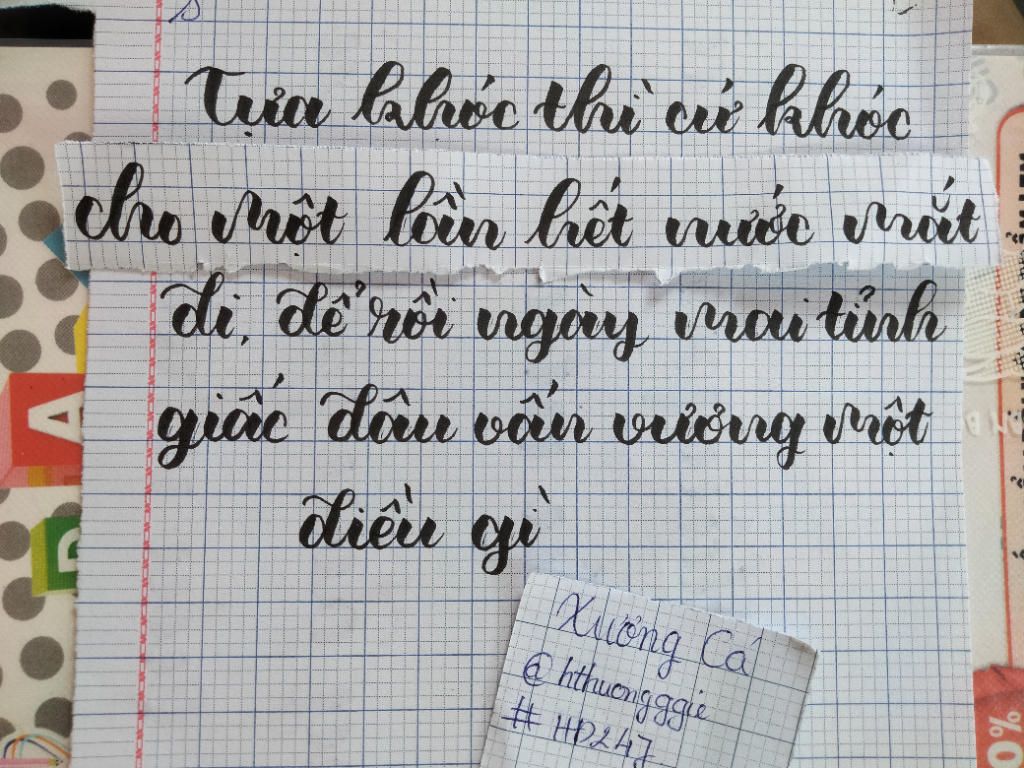 Tựa khóc thì cứ khóc
cho một lần hết nước mắt
đi, để rồi ngày mai tỉnh
giấc đâu vấn vương một
điều gì
Xương Cá
@hthuongggie
# HD247
A
0%